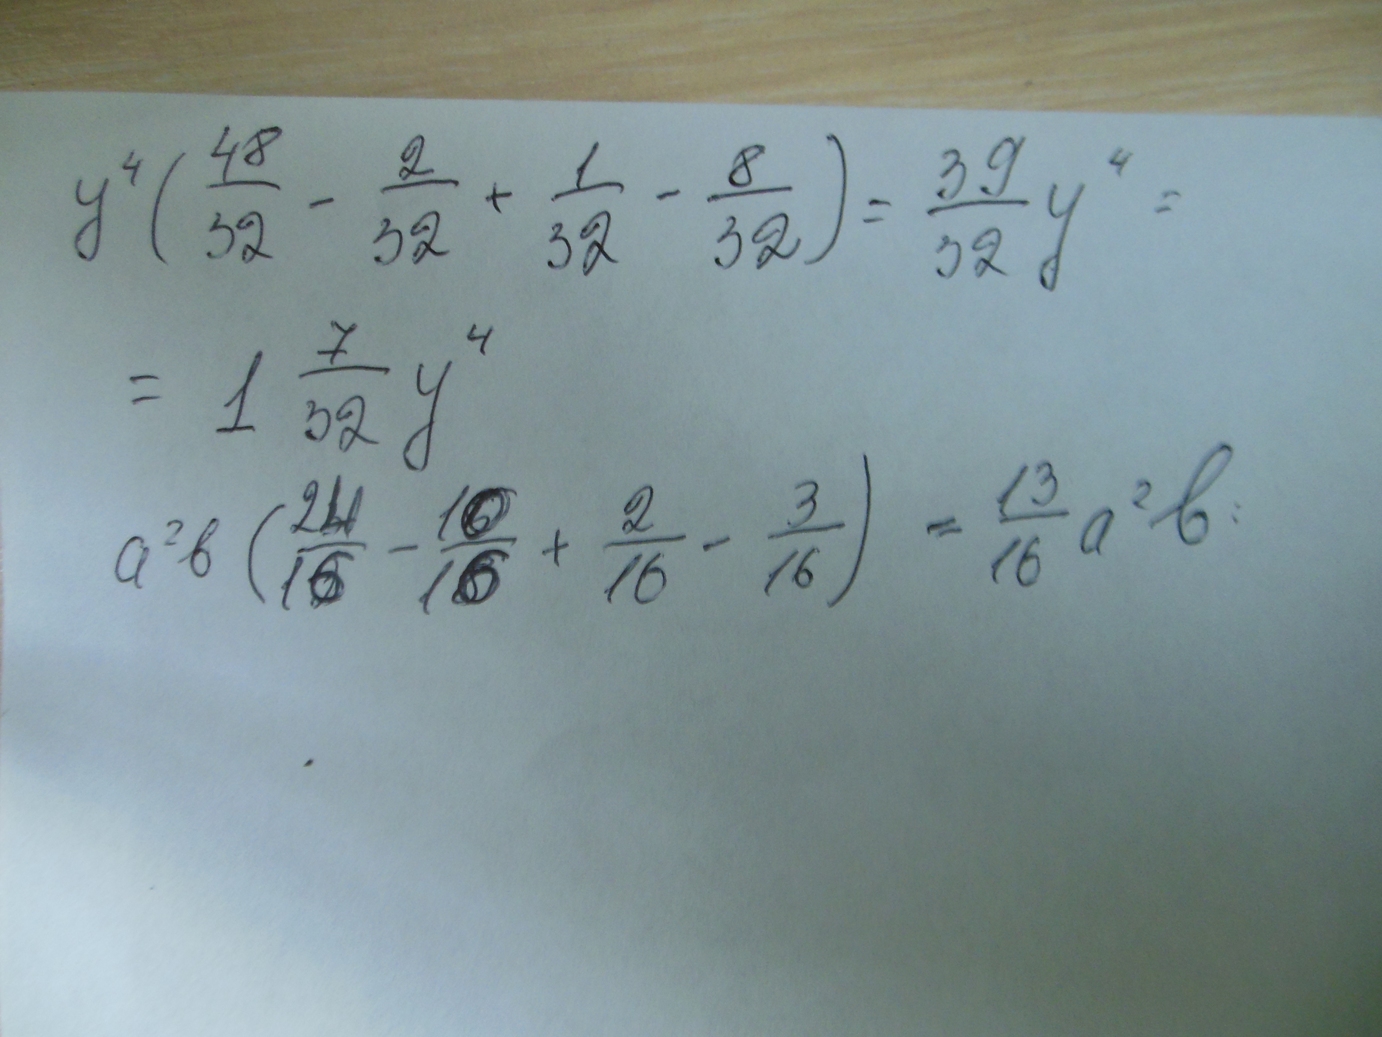 y⁴(48/32 - 2/32 + 1/32 - 8/32) = 39/32 y⁴ =
= 1 7/32 y⁴
a²b(24/16 - 10/16 + 2/16 - 3/16) = 13/16 a²b